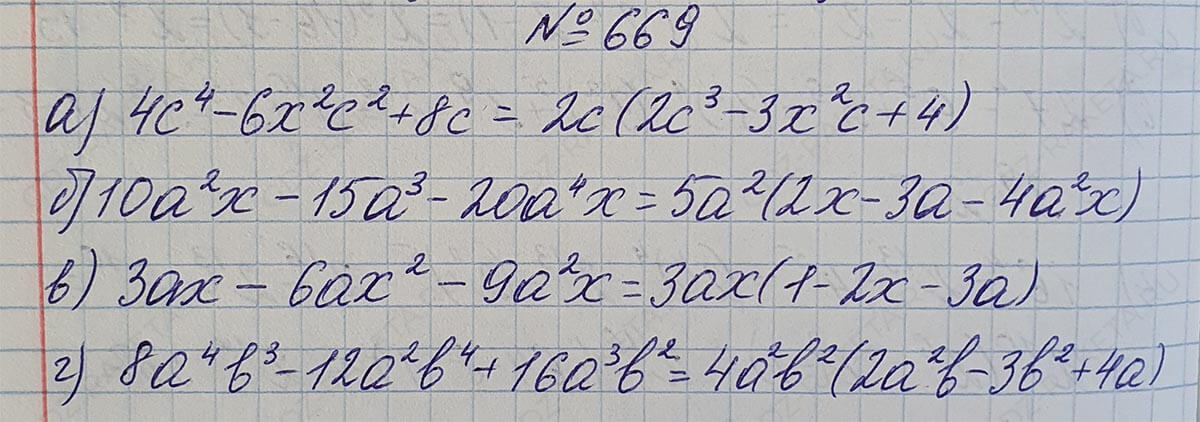 №669
а) 4c⁴-6x²c²+8c = 2c(2c³-3x²c+4)
б) 10a²x-15a³-20a⁴x=5a²(2x-3a-4a²x)
в) 3ax-6ax²-9a²x=3ax(1-2x-3a)
г) 8a⁴b³-12a²b⁴+16a³b²=4a²b²(2a²b-3b²+4a)